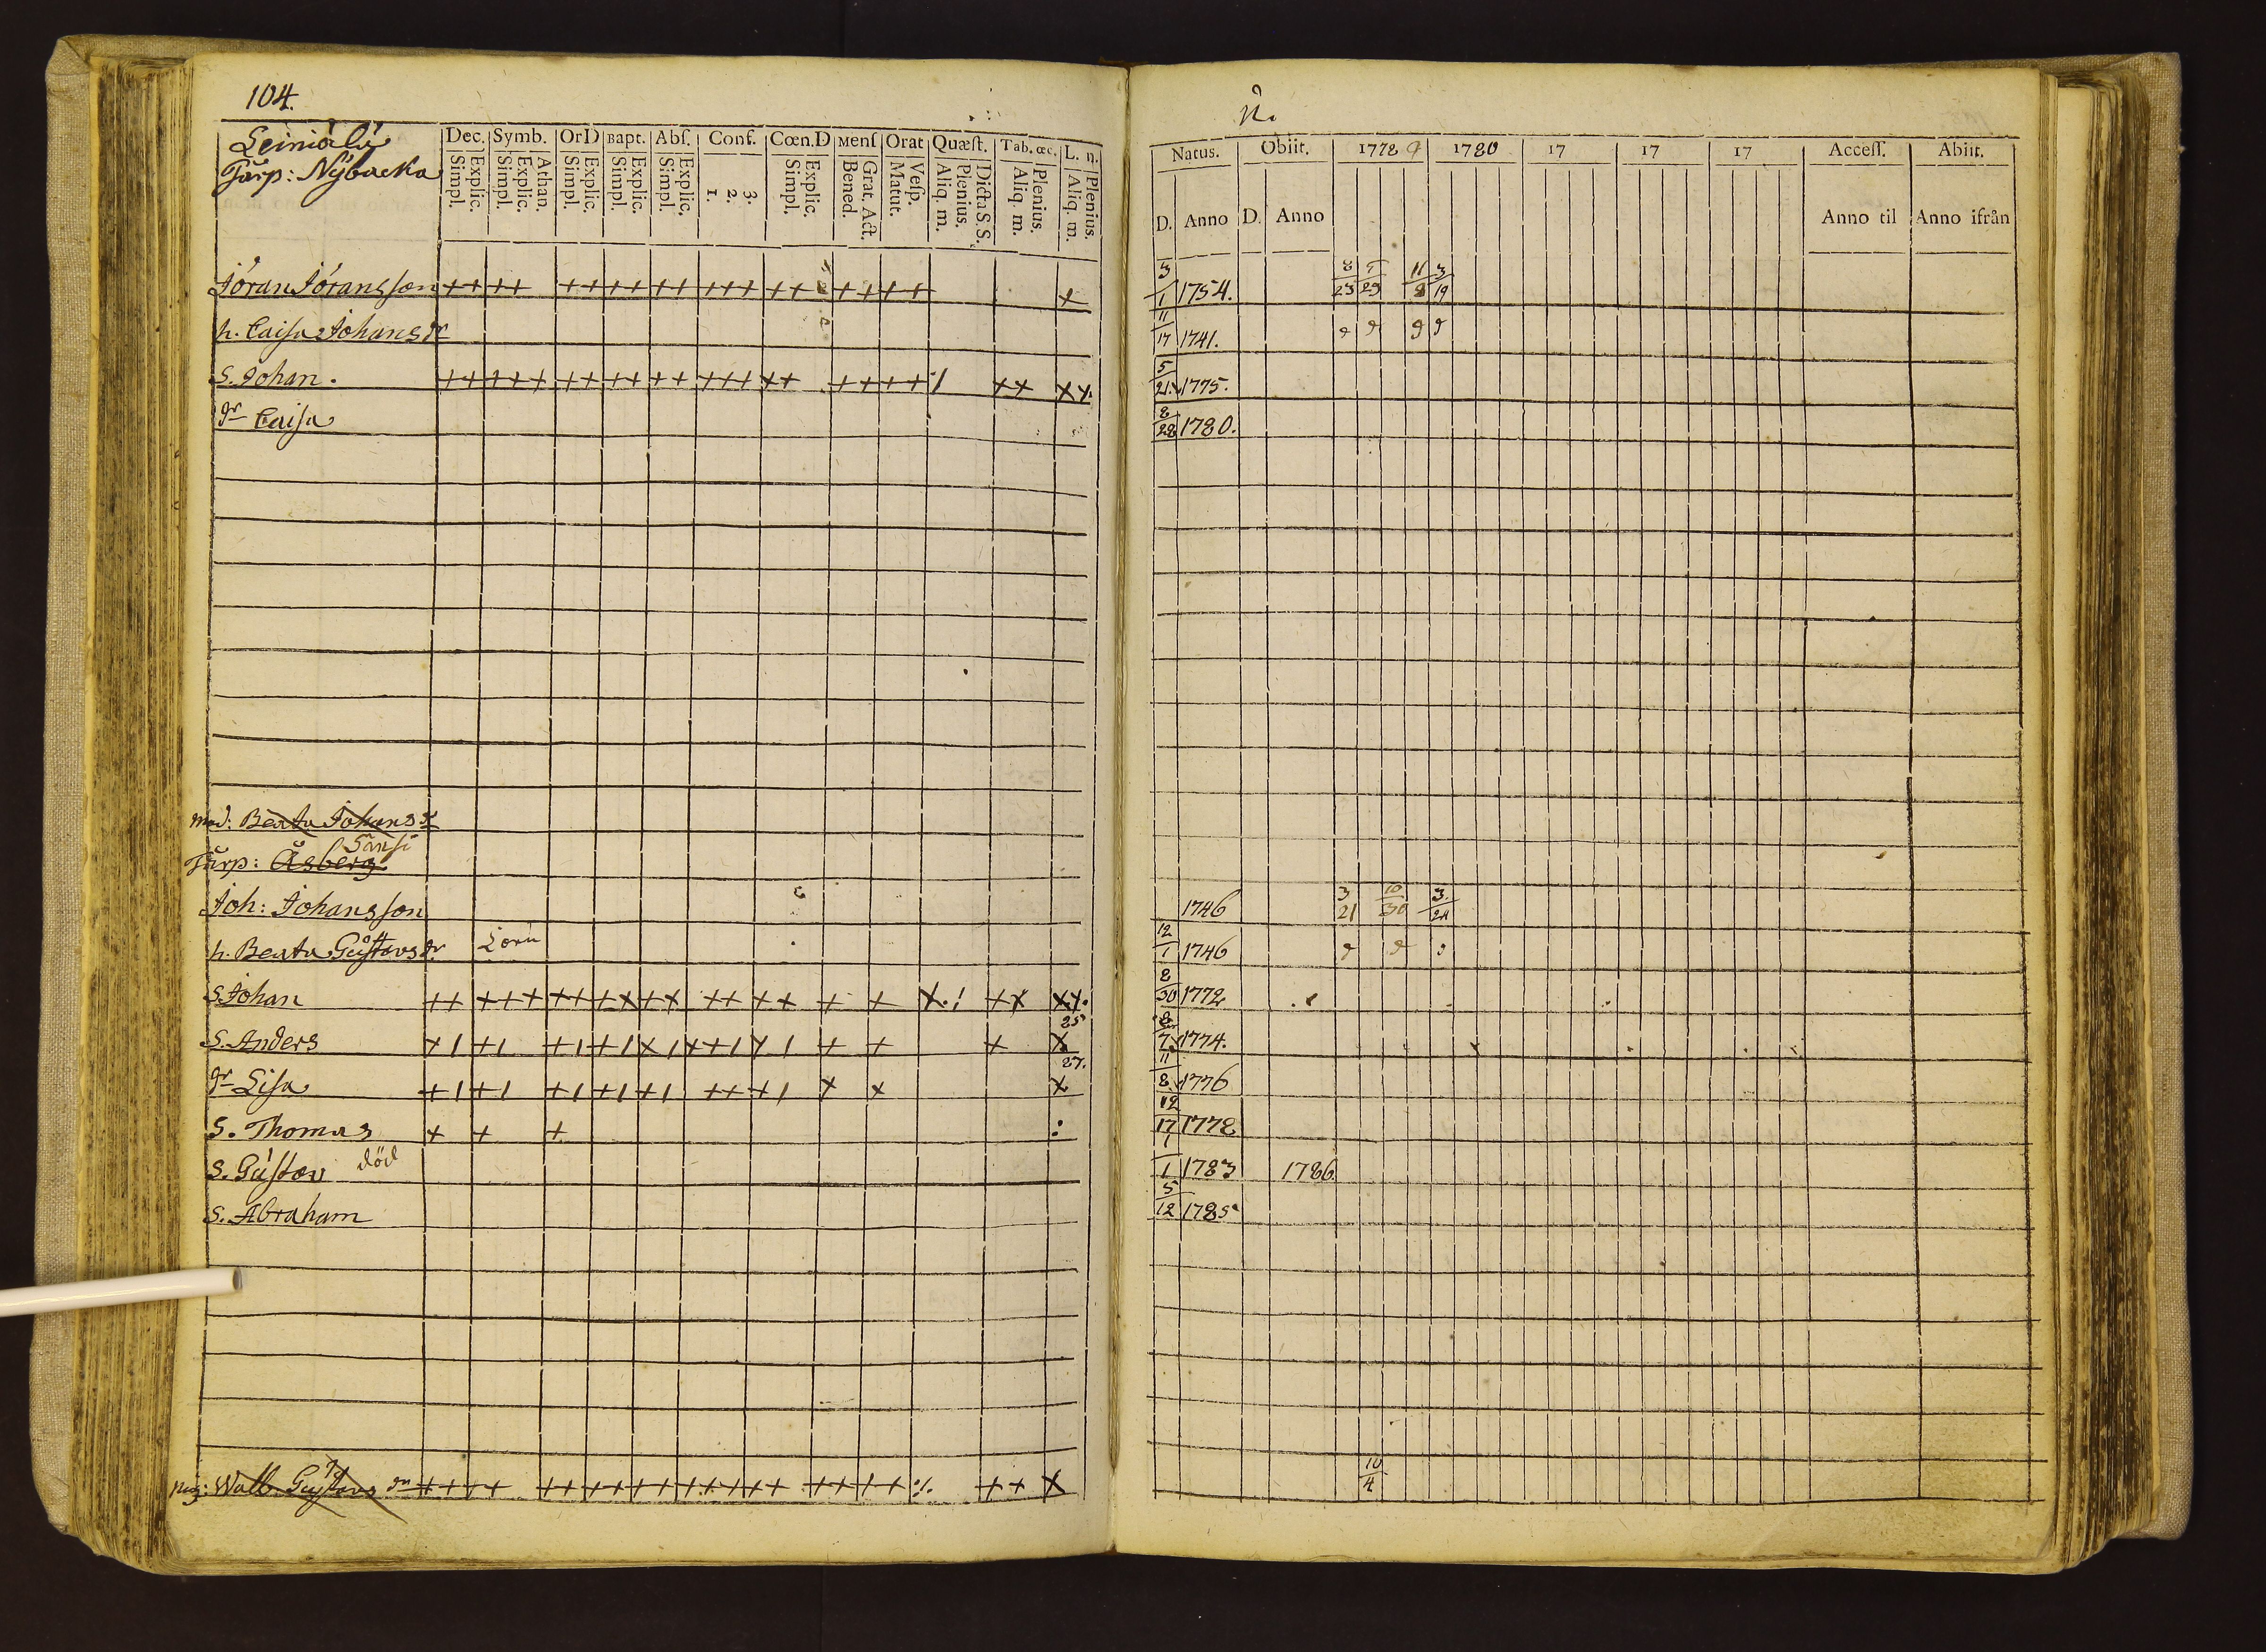 104.
Leiniälä
Tårp: Nybacka
Dec. Symb. OrD Bapt. Abſ. Conf. Cœn.D Menſ Orat Quæſt. Tab. œc. L. n.
Explic. Simpl. Athan. Explic. Simpl. Explic. Simpl. Explic. Simpl. Explic. Simpl. 3. 2. 1. Explic. Simpl. Grat. Act. Bened. Veſp. Matut. Dicta S. S. Plenius. Aliq. m. Plenius. Aliq. m. Plenius. Aliq. m.
Jöran Jöransson ++ ++ ++ ++ ++ +++ ++ ++ ++ +
h. Caisa Johans dr
S. Johan. ++ +++ ++ ++ ++ +++ ++ ++ ++ / ++ ++.
dr Caisa
Beata Johans dr
Sansi
Tårp: Åsberg
Joh: Johansson
h. Beata Gustavs dr
S. Johan ++ +++ ++ ++ ++ ++ ++ + + ++ ++.
25
S. Anders +/ +/ +/ +/ +/ ++/ +/ + + + +
27.
dr Lisa +/ +/ +/ +/ +/ ++ +/ + + +
S. Thomas + + + :
S. Gustav död
S. Abraham
Pig: Walb. Gustavs dr ++ ++ ++ ++ ++ +++ ++ ++ ++ ·/. ++ +
Natus. Obiit. 1778 9 1780 17 17 17 Acceſſ. Abiit.
D. Anno D. Anno Anno til Anno ifrån
3/1 1754. 8/23 5/29 11/8 3/19
11/17 1741.
5/21. 1775.
8/28 1780.
1746 3/21 10/30 3./24
12/1 1746
8/30 1772
8/7 1774.
11/8 1776
12/17 1778
1/1 1783 1786.
5/12 1785
10/4